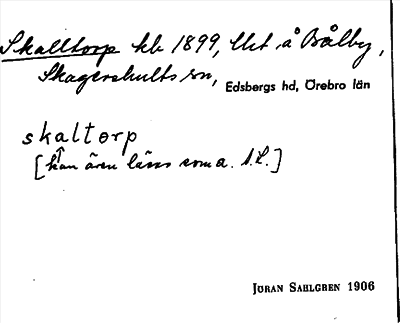 Skalltorp kb 1899, lht å Bålby,
Skagershults sn, Edsbergs hd, Örebro län
skaltorp
[kan även läsas som a. J.S.]
JÖRAN SAHLGREN 1906